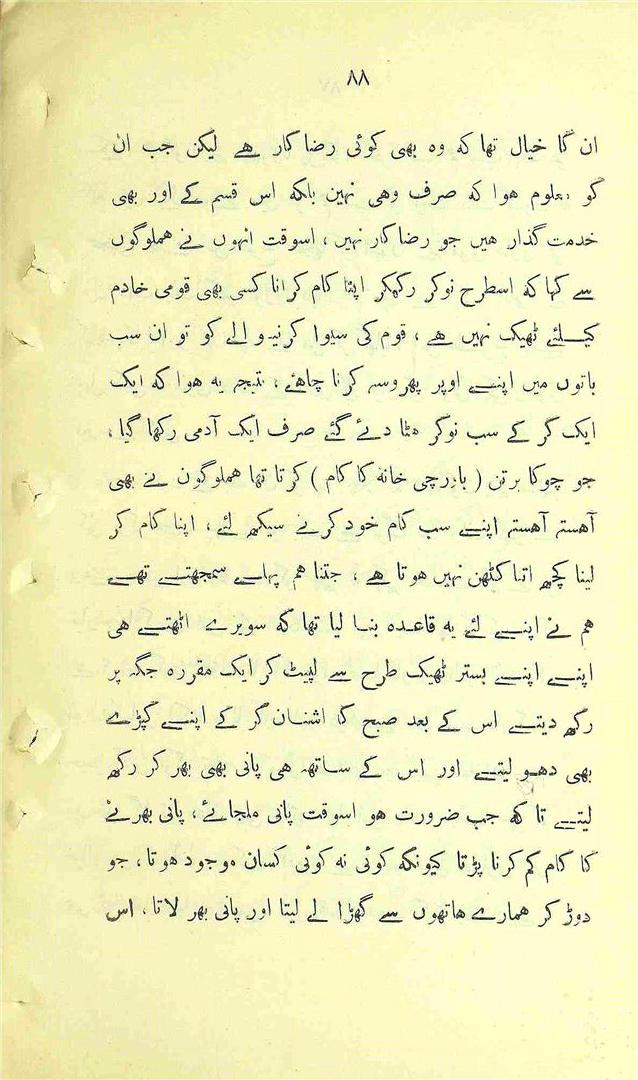 ۸۸
ان کا خیال تھا که وہ بھی کوئی رضا کار ہے لیکن جب ان
کو معلوم ہوا که صرف وہی نہین بلکه اس قسم کے اور بھی
خدمت گذار ہیں جو رضا کار نہیں ، اسوقت انہوں نے ہملوگوں
سے کہا که اسطرح نوکر رکھکر اپنا کام کرانا کسی بھی قومی خادم
کیلئے ٹھیک نہیں ہے ، قوم کی سیوا کرنیوالے کو تو ان سب
باتوں میں اپنے اوپر بھروسه کرنا چاہئے ، نتیجه یه ہوا که ایک
ایک کر کے سب نوکر ہٹا دئے گئے صرف ایک آدمی رکھا گیا ،
جو چوکا برتن ( باورچی خانه کا کام ) کرتا تھا ہملوگون نے بھی
آہسته آہسته اپنے سب کام خود کرنے سیکھ لئے ، اپنا کام کر
لینا کچھ اتنا کٹھن نہیں ہوتا ہے ، جتنا ہم پہلے سمجھتے تھے
ہم نے اپنے لئے یه قاعدہ بنا لیا تھا که سویرے اٹھتے ہی
اپنے اپنے بستر ٹھیک طرح سے لپیٹ کر ایک مقررہ جگه پر
رکھ دیتے اس کے بعد صبح کا اشنان کر کے اپنے کپڑے
بھی دھو لیتے اور اس کے ساتھ ہی پانی بھی بھر کر رکھ
لیتے تا که جب ضرورت ہو اسوقت پانی ملجائے ، پانی بھرنے
کا کام کم کرنا پڑتا کیونکه کوئی نه کوئی کسان موجود ہوتا ، جو
دوڑ کر ہمارے ہاتھوں سے گھڑا لے لیتا اور پانی بھر لاتا ، اس